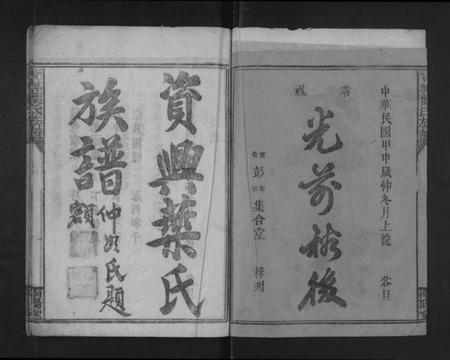 中華民國甲申歲仲冬月上浣 谷旦
恭祝
光前裕後
彭集合堂 梓刊
資興葉氏
族譜
仲如氏題